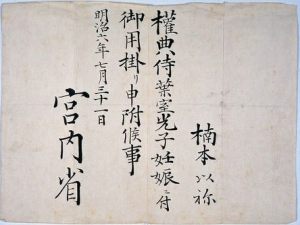 楠本以祢
權典侍葉室光子妊娠ニ付
御用掛リ申附候事
明治六年七月三十一日
宮内省